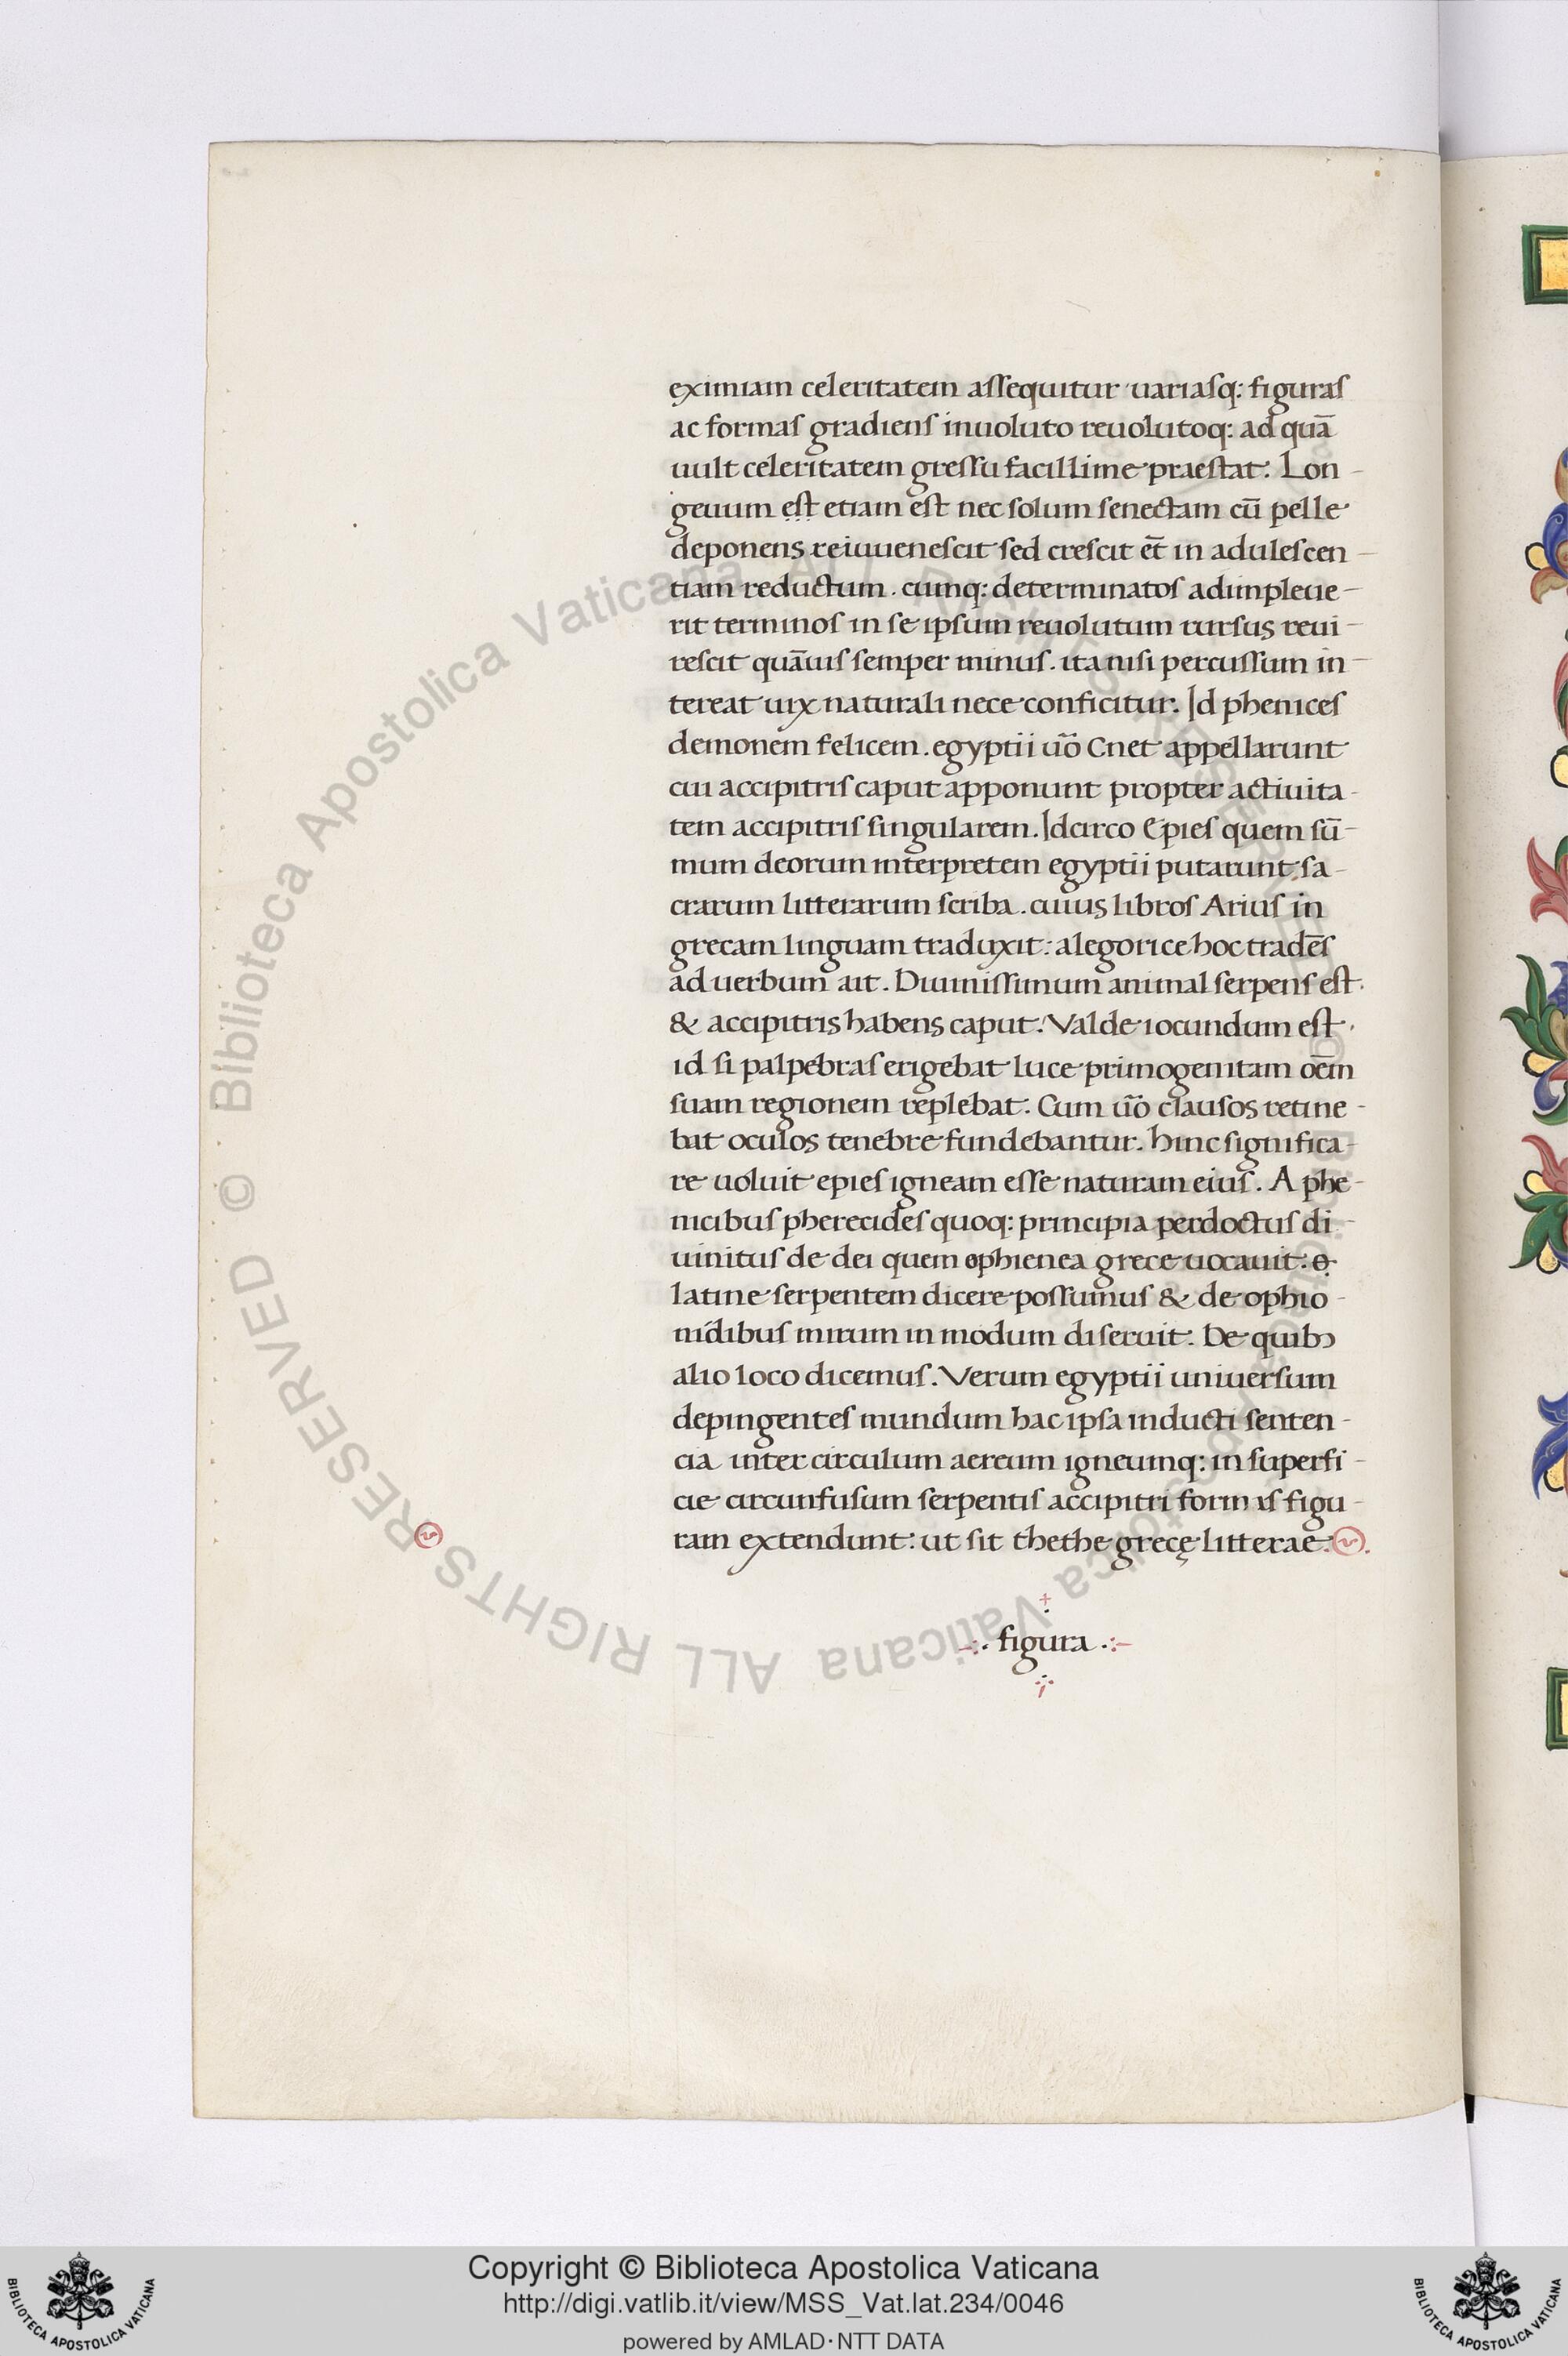 eximiam celeritatem assequitur uariasq: figuras
ac formas gradiens inuoluto reuolutoq: ad quā
uult celeritatem gressu facillime praestat. Lon-
geuum est etiam est nec solum senectam cū pelle
deponens reiuuenescit sed crescit et̄ in adulescen-
tiam reductum. cumq: determinatos adimpleue-
rit terminos in se ipsum reuolutum rursus reui-
rescit quāuis semper minus. ita nisi percussum in-
tereat uix naturali nece conficitur. Id phenices
demonem felicem. egyptii uō Cnet appellarunt
cui accipitris caput apponunt propter actiuita-
tem accipitris singularem. Idcirco Epies quem sū-
mum deorum interpretem egyptii putarunt sa-
crarum litterarum scriba. cuius libros Arius in
grecam linguam traduxit: alegorice hoc tradēs
ad uerbum ait. Diuinissimum animal serpens est.
& accipitris habens caput. Valde iocundum est.
id si palpebras erigebat luce primogenitam oēm
suam regionem replebat. Cum uō clausos retine-
bat oculos tenebre fundebantur. hinc significa-
re uoluit epies igneam esse naturam eius. A phe-
nicibus pherecides quoq: principia perdoctus di-
uinitus de dei quem ophienea grece uocauit. o
latine serpentem dicere possumus & de ophio-
nidibus mirum in modum diseruit. De quibꝫ
alio loco dicemus. Verum egyptii uniuersum
depingentes mundum hac ipsa inducti senten-
cia inter circulum aereum igneumq: in superfi-
cie circunfusum serpentis accipitri formis figu-
ram extendunt: ut sit thethe grecę litterae.
. figura .
© Biblioteca Apostolica Vaticana ALL RIGHTS RESERVED © Biblioteca Apostolica Vaticana ALL RIGHTS RESERVED
Copyright © Biblioteca Apostolica Vaticana
http://digi.vatlib.it/view/MSS_Vat.lat.234/0046
powered by AMLAD·NTT DATA
BIBLIOTECA APOSTOLICA VATICANA
BIBLIOTECA APOSTOLICA VATICANA